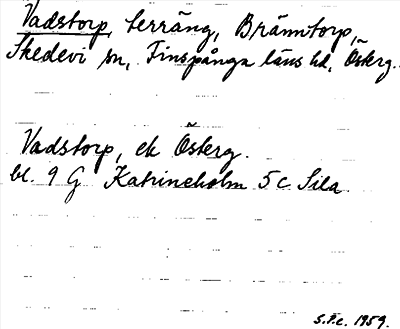 Vadstorp, terräng, Brämtorp,
Skedevi sn, Finspånga läns hd, Österg.
Vadstorp, ek Österg.
bl. 9 G Katrineholm 5 c Sila
S.F.c. 1959.